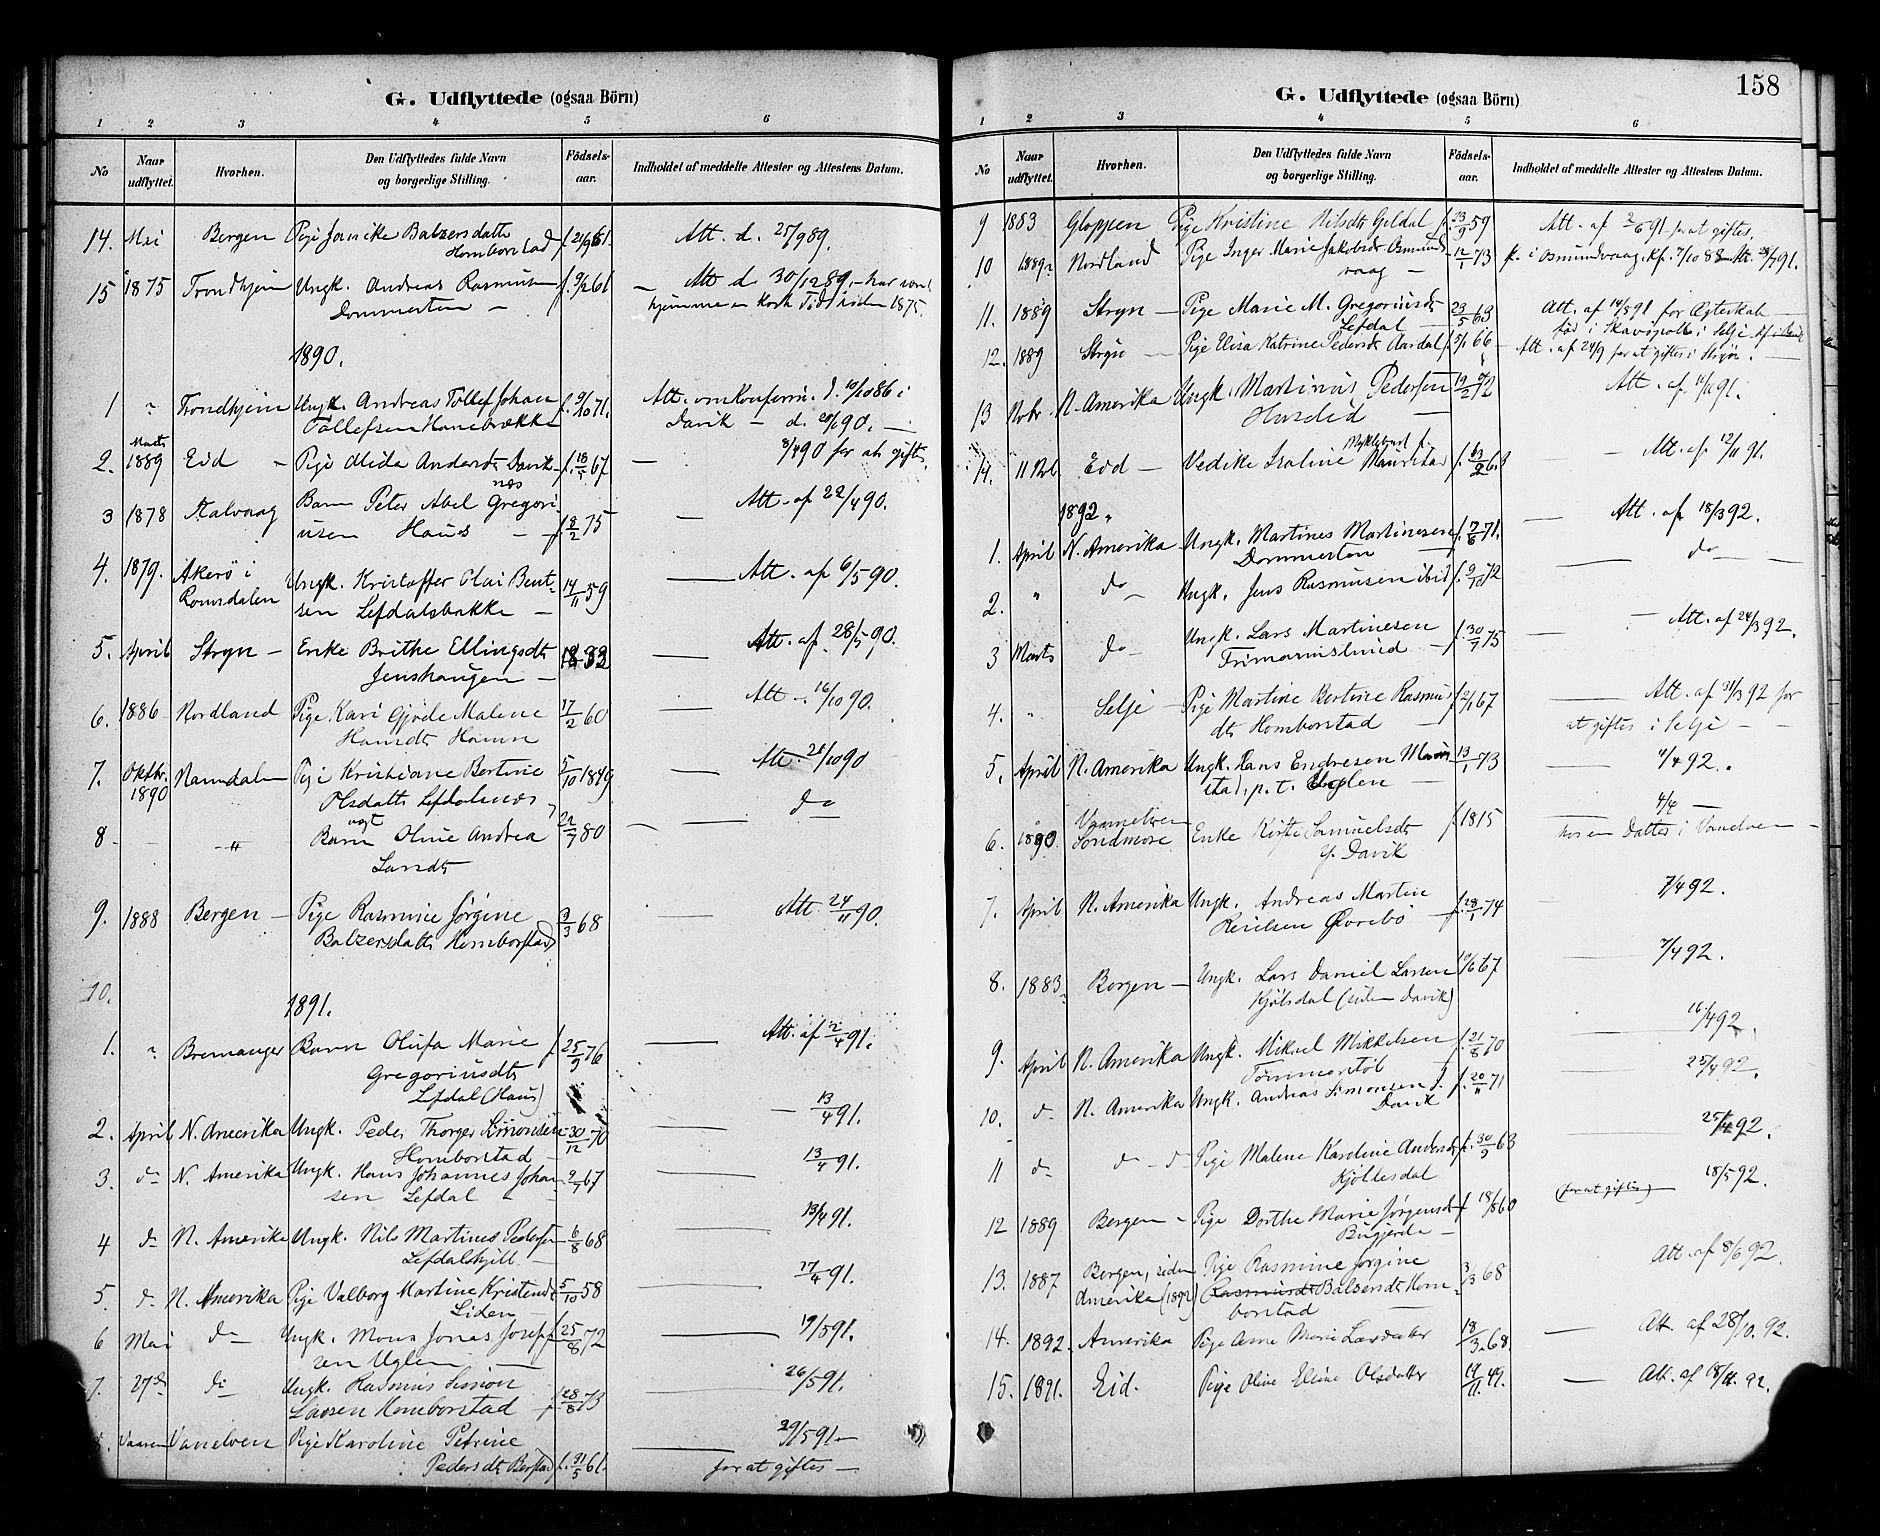 G. Udflyttede (ogsaa Börn)
1 2 3 4 5 6
No Naar udflyttet. Hvorhen. Den Udflyttedes fulde Navn og borgerlige Stilling. Födsels-aar. Indholdet af meddelte Attester og Attestens Datum.
14. Mai Bergen Pige Jamike Balzersdatts
Homborstad f. Att. d. 25/9 89.
15 1875 Trondhjem Ungk. Andreas Rasmusen f. 9/2 61 Att d. 30/12 89, har været
Dommersten hjemme en kort Tid siden 1875.
1890.
1 " Trondhjem Ungk. Andreas Tollef Johan f. 9/10 71. Att. om Konfirm. d. 10/10 86 i
Tollefsen Hanebrække Davik d. 28/1 90.
2. Marts 1889 Eid Pige Alida Andersdt Davik- f. 18/5 67 8/4 90 for at giftes.
næs
3 1878 Kalvaag Barn Peter Abel Gregori- Att. af 22/4 90.
usen Haus f. 8/2 75
4. 1879. Akerö i Romsdalen Ungk. Kristoffer Olai Bent- 14/11 59 Att. af 6/5 90.
sen Lefdalsbakke
5. April Stryn Enke Brithe Ellingsdt 1832 Att. af 28/5 90.
Jenshaugen
6. 1886 Nordland Pige Kari Gjöde Malene 17/2 60 Att. 16/10 90.
Hansdt Hamn
7. Oktbr. 1890 Namdalen Pige Kristiane Bertine 5/10 1849 Att. 21/10 90
Olsdatts Lefdalsnæs
8 " Barn Oline Andrea 22/7 80 do
Larsdt
9. 1888 Bergen Pige Rasmine Jörgine 3/3 68 Att. 24/11 90.
Balzersdatts Homborstad
10.
1891.
1. " Bremanger Barn Olufa Marie f. 25/9 76 Att. af 2/4 91.
Gregoriusdt
Lefdal (Haus)
2. April N. Amerika Ungk. Peder Thorger Simonsen 30/12 70 13/4 91.
Homborstad
3. do N. Amerika Ungk. Hans Johannes Johan- 2/7 67 13/4 91.
sen Lefdal
4 do N. Amerika Ungk. Nils Martinus Pedersen 6/8 68 13/4 91.
Lefdalshjell
5. do N. Amerika Pige Valborg Martine Kristensdt 5/10 58 17/4 91.
Liden
6 Mai do Ungk. Mons Jonas Josef- 25/8 72 19/5 91.
sen Uglen
7. 27de do Ungk. Rasmus Simon 26/5 91.
Larsen Homborstad f. 28/8 73
8. Vaaren Vanelven Pige Karoline Petrine 29/5 91
Pedersdt Berstad f. 31/5 61. for at giftes
158
G. Udflyttede (ogsaa Börn)
1 2 3 4 5 6
No Naar udflyttet. Hvorhen. Den Udflyttedes fulde Navn og borgerlige Stilling. Födsels-aar. Indholdet af meddelte Attester og Attestens Datum.
9 1883 Gloppen Pige Kristine Nilsdt Geldal f. 23/9 59 Att. af 2/6 91 for at giftes.
10 1889 Nordland Pige Inger Marie Jakobsdt Osmunds- 12/1 73 f. i Osmundvaag, kf. 7/10 88 Att. 28/7 91.
vaag
11. 1889 Stryn Pige Marie M. Gregoriusdt 23/5 63 Att. af 14/8 91 for Ægteskab
Lefdal født i Skavøpoll i Selje
12. 1889 Stryn Pige Elisa Katrine Pedersdt Aardal f. 3/1 66 Att. af 24/9 for at giftes i Stryn.
13 Nobr. N. Amerika Ungk. Martinus Pedersen 19/2 72 Att. af 11/11 91.
Hundeid
14. 11 Nvb. Eid Vedike Isaline Maurstad Myklebust f. Att. af 12/11 91.
1892.
1. April N. Amerika Ungk. Martines Martinesen f. 7/6 71. Att. af 18/3 92.
Dommersten
2. " do Ungk. Jens Rasmusen ibid f. 9/10 72 do
3 Marts do Ungk. Lars Martinesen f. 30/7 75 Att. af 24/3 92.
4. " Selje Pige Martine Bertine Rasmus- f. 2/1 67 Att. af 31/3 92 for
dt Homborstad at giftes i Selje
5. April N. Amerika Ungk. Hans Endresen Maur- 13/1 73 4/4 92.
stad, p.t. Uglen
6. 1890. Vannelven Søndmøre Enke Kirste Samuelsdt f. 1815 4/4
y. Davik hos en Datter i Vanelven
7. April N. Amerika Ungk. Andreas Martin 7/4 92.
Øvrebø f. 28/1 74
8. 1883. Bergen Ungk. Lars Daniel Larsen 10/6 67 7/4 92.
Kjölsdal (siden Davik)
9. April N. Amerika Ungk. Mikael Mikkelsen f. 21/8 70 16/4 92.
Tömmerstöl
10. do N. Amerika Ungk. Andreas Simonsen f. 20/11 71 25/4 92.
Davik
11 do do Pige Malene Karoline Andersdt f. 30/9 63 25/4 92.
Kjöllesdal
12 1889 Bergen Pige Dorthe Marie Jörgensdt f. 18/8 60 (for at giftes) 18/5 92.
13. 1887 Bergen, siden Amerika (1892) Pige Rasmine Jørgine 3/3 68 Att. af 8/6 92.
Rasmusdt Balsersdt Hom-
borstad
14. 1892. Amerika Pige Anne Marie Larsdatter 18/3 68. Att. af 28/10. 92.
15. 1891. Eid. Pige Oline Eline Olsdatter 14/11 49. Att. af 18/11. 92.